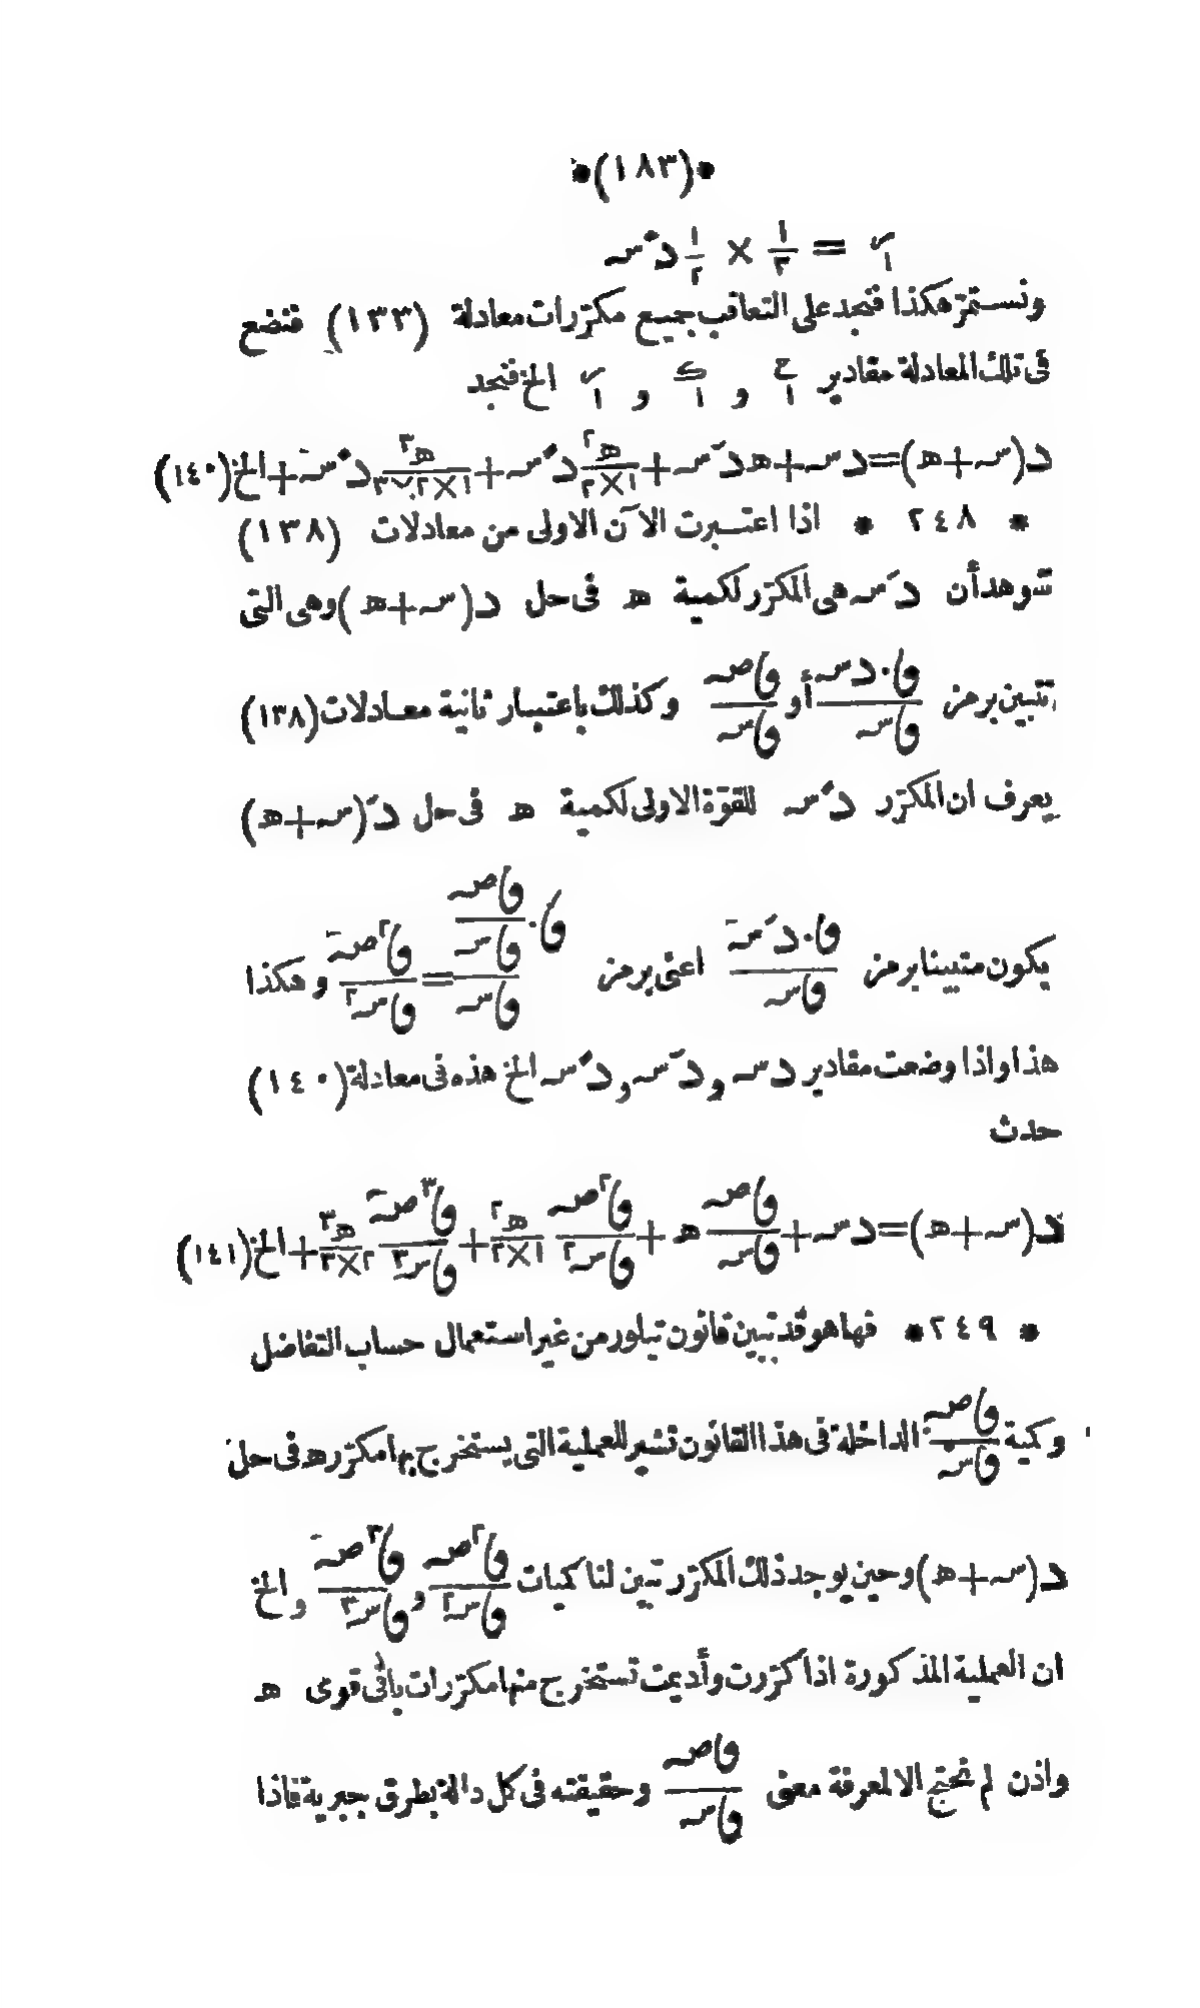 *(١٨٣)*
ر/١ = ١/٣ × ١/٢ د‴س
ونستمرّ هكذا فنجد على التعاقب جميع مكرّرات معادلة (١٣٣) فنضع
فى تلك المعادلة مقادير ع/١ و ك/١ و ر/١ الخ فنجد
د(س+ه)=دس+هد′س+ه٢/١×٢ د″س+ه٣/١×٢×٣ د‴س+الخ(١٤٠)
* ٢٤٨ * اذا اعتبرت الآن الاولى من معادلات (١٣٨)
شوهد أن د′س هى المكرّر لكمية ه فى حل د(س+ه) وهى التى
تتبين برمز ق.دس/قس أو قص/قس وكذلك باعتبار ثانية معادلات (١٣٨)
يعرف ان المكرّر د″س للقوّة الاولى لكمية ه فى حل د′(س+ه)
يكون متبينا برمز ق.د′س/قس اعنى برمز ق.قص/قس/قس=ق٢ص/قس٢ وهكذا
هذا واذا وضعت مقادير دس و د′س و د″س الخ هذه فى معادلة (١٤٠)
حدث
د(س+ه)=دس+قص/قس ه+ق٢ص/قس٢ ه٢/١×٢+ق٣ص/قس٣ ه٣/٢×٣+الخ(١٤١)
* ٢٤٩ * فها هو قد تبين قانون تيلور من غير استعمال حساب التفاضل
وكمية قص/قس الداخلة فى هذا القانون تشير للعملية التى يستخرج بها مكرّر ه فى حل
د(س+ه) وحين يوجد ذلك المكرّر تبين لنا كميات ق٢ص/قس٢ و ق٣ص/قس٣ و الخ
ان العملية المذكورة اذا كرّرت وأديمت تستخرج منها مكرّرات باقى قوى ه
واذن لم نحتج الا لمعرفة معنى قص/قس وحقيقته فى كل دالة بطرق جبرية فاذا